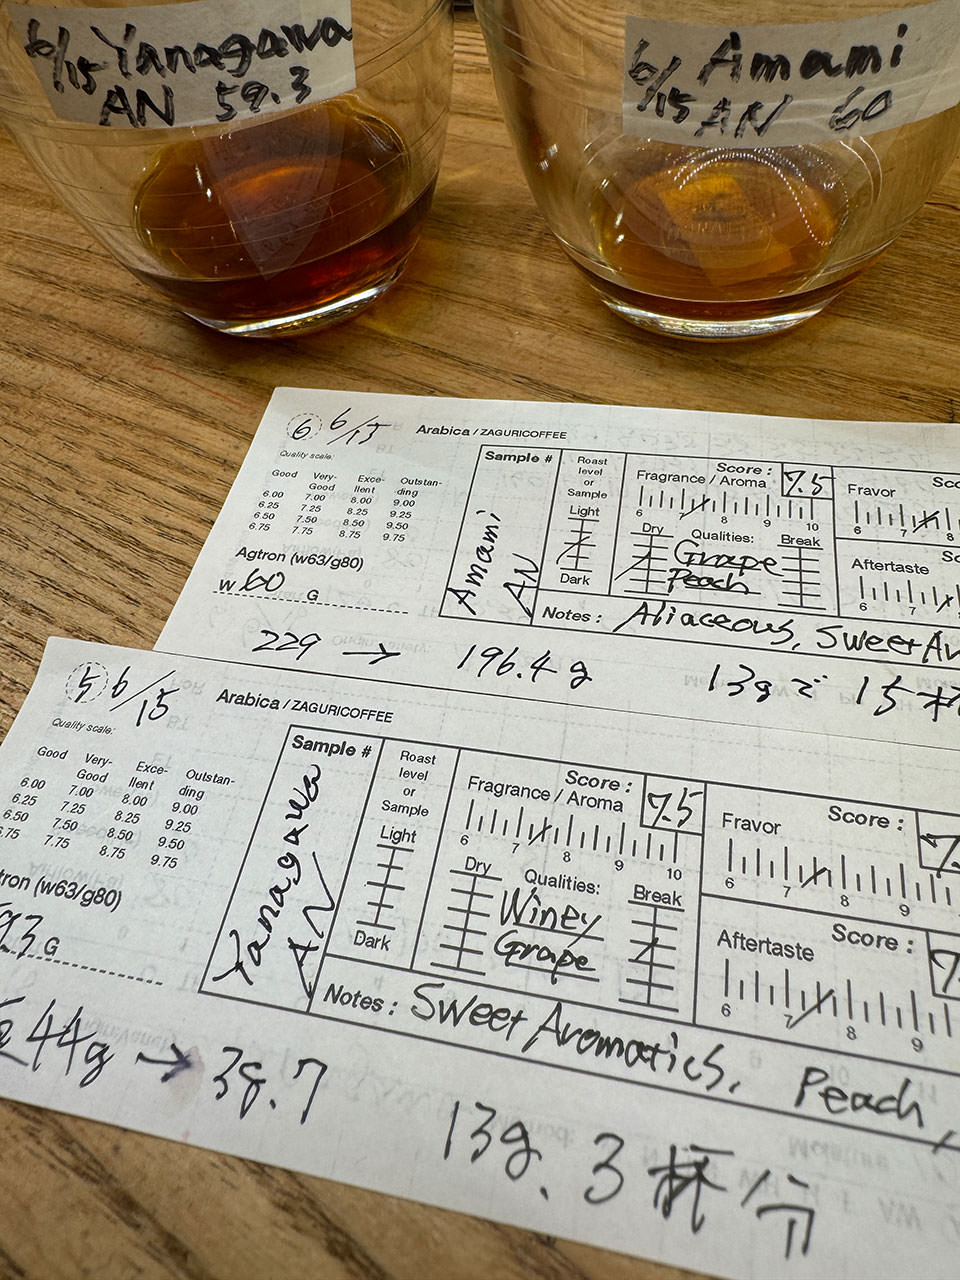 6/15 Yanagawa
AN 59.3
6/15 Amami
AN 60
6 6/15
Arabica / ZAGURICOFFEE
Quality scale:
Good Very-Good Exce-llent Outstan-ding
6.00 7.00 8.00 9.00
6.25 7.25 8.25 9.25
6.50 7.50 8.50 9.50
6.75 7.75 8.75 9.75
Agtron (w63/g80)
W 60 G
Sample #
Amami
AN
Roast
level
or
Sample
Light
Dark
Score : 7.5
Fragrance / Aroma
6 7 8 9 10
Dry Qualities: Break
Grape
Peach
Fravor
6 7 8
Aftertaste
6 7
Notes : Aliaceous, Sweet
229 → 196.4 g 13g で 15
5 6/15
Arabica / ZAGURICOFFEE
Quality scale:
Good Very-Good Exce-llent Outstan-ding
6.00 7.00 8.00 9.00
6.25 7.25 8.25 9.25
6.50 7.50 8.50 9.50
.75 7.75 8.75 9.75
tron (w63/g80)
G
Sample #
Yanagawa
AN
Roast
level
or
Sample
Light
Dark
Score : 7.5
Fragrance / Aroma
6 7 8 9 10
Dry Qualities: Break
Winey
Grape
Fravor Score :
6 7 8 9
Aftertaste Score :
6 7 8 9
Notes : Sweet Aromatics, Peach,
44g → 38.7
13g. 3杯分